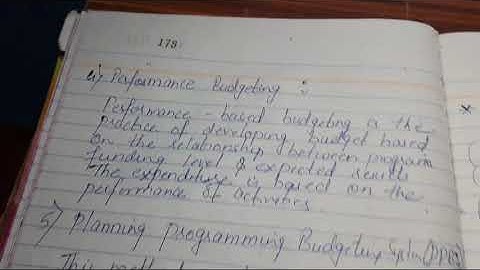 178
4) Performance Budgeting :
Performance - based budgeting is the
practice of developing budget based
on the relationship between program
funding level & expected results
The expenditure is based on the
performance of activities
5) Planning programming Budgeting System (PPBS)
This method